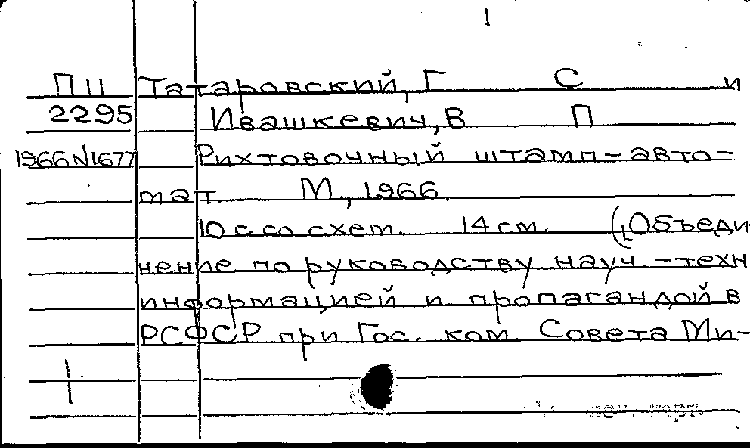 1
П 11 Татаровский, Г С и
2295 Ивашкевич, В П
1966N1677 Рихтовочный штамп-авто-
мат. М, 1966.
10 с со схем. 14 см. (Объеди
нение по руководству науч.-техн
информацией и пропагандой в
РСФСР при Гос. ком. Совета Ми-